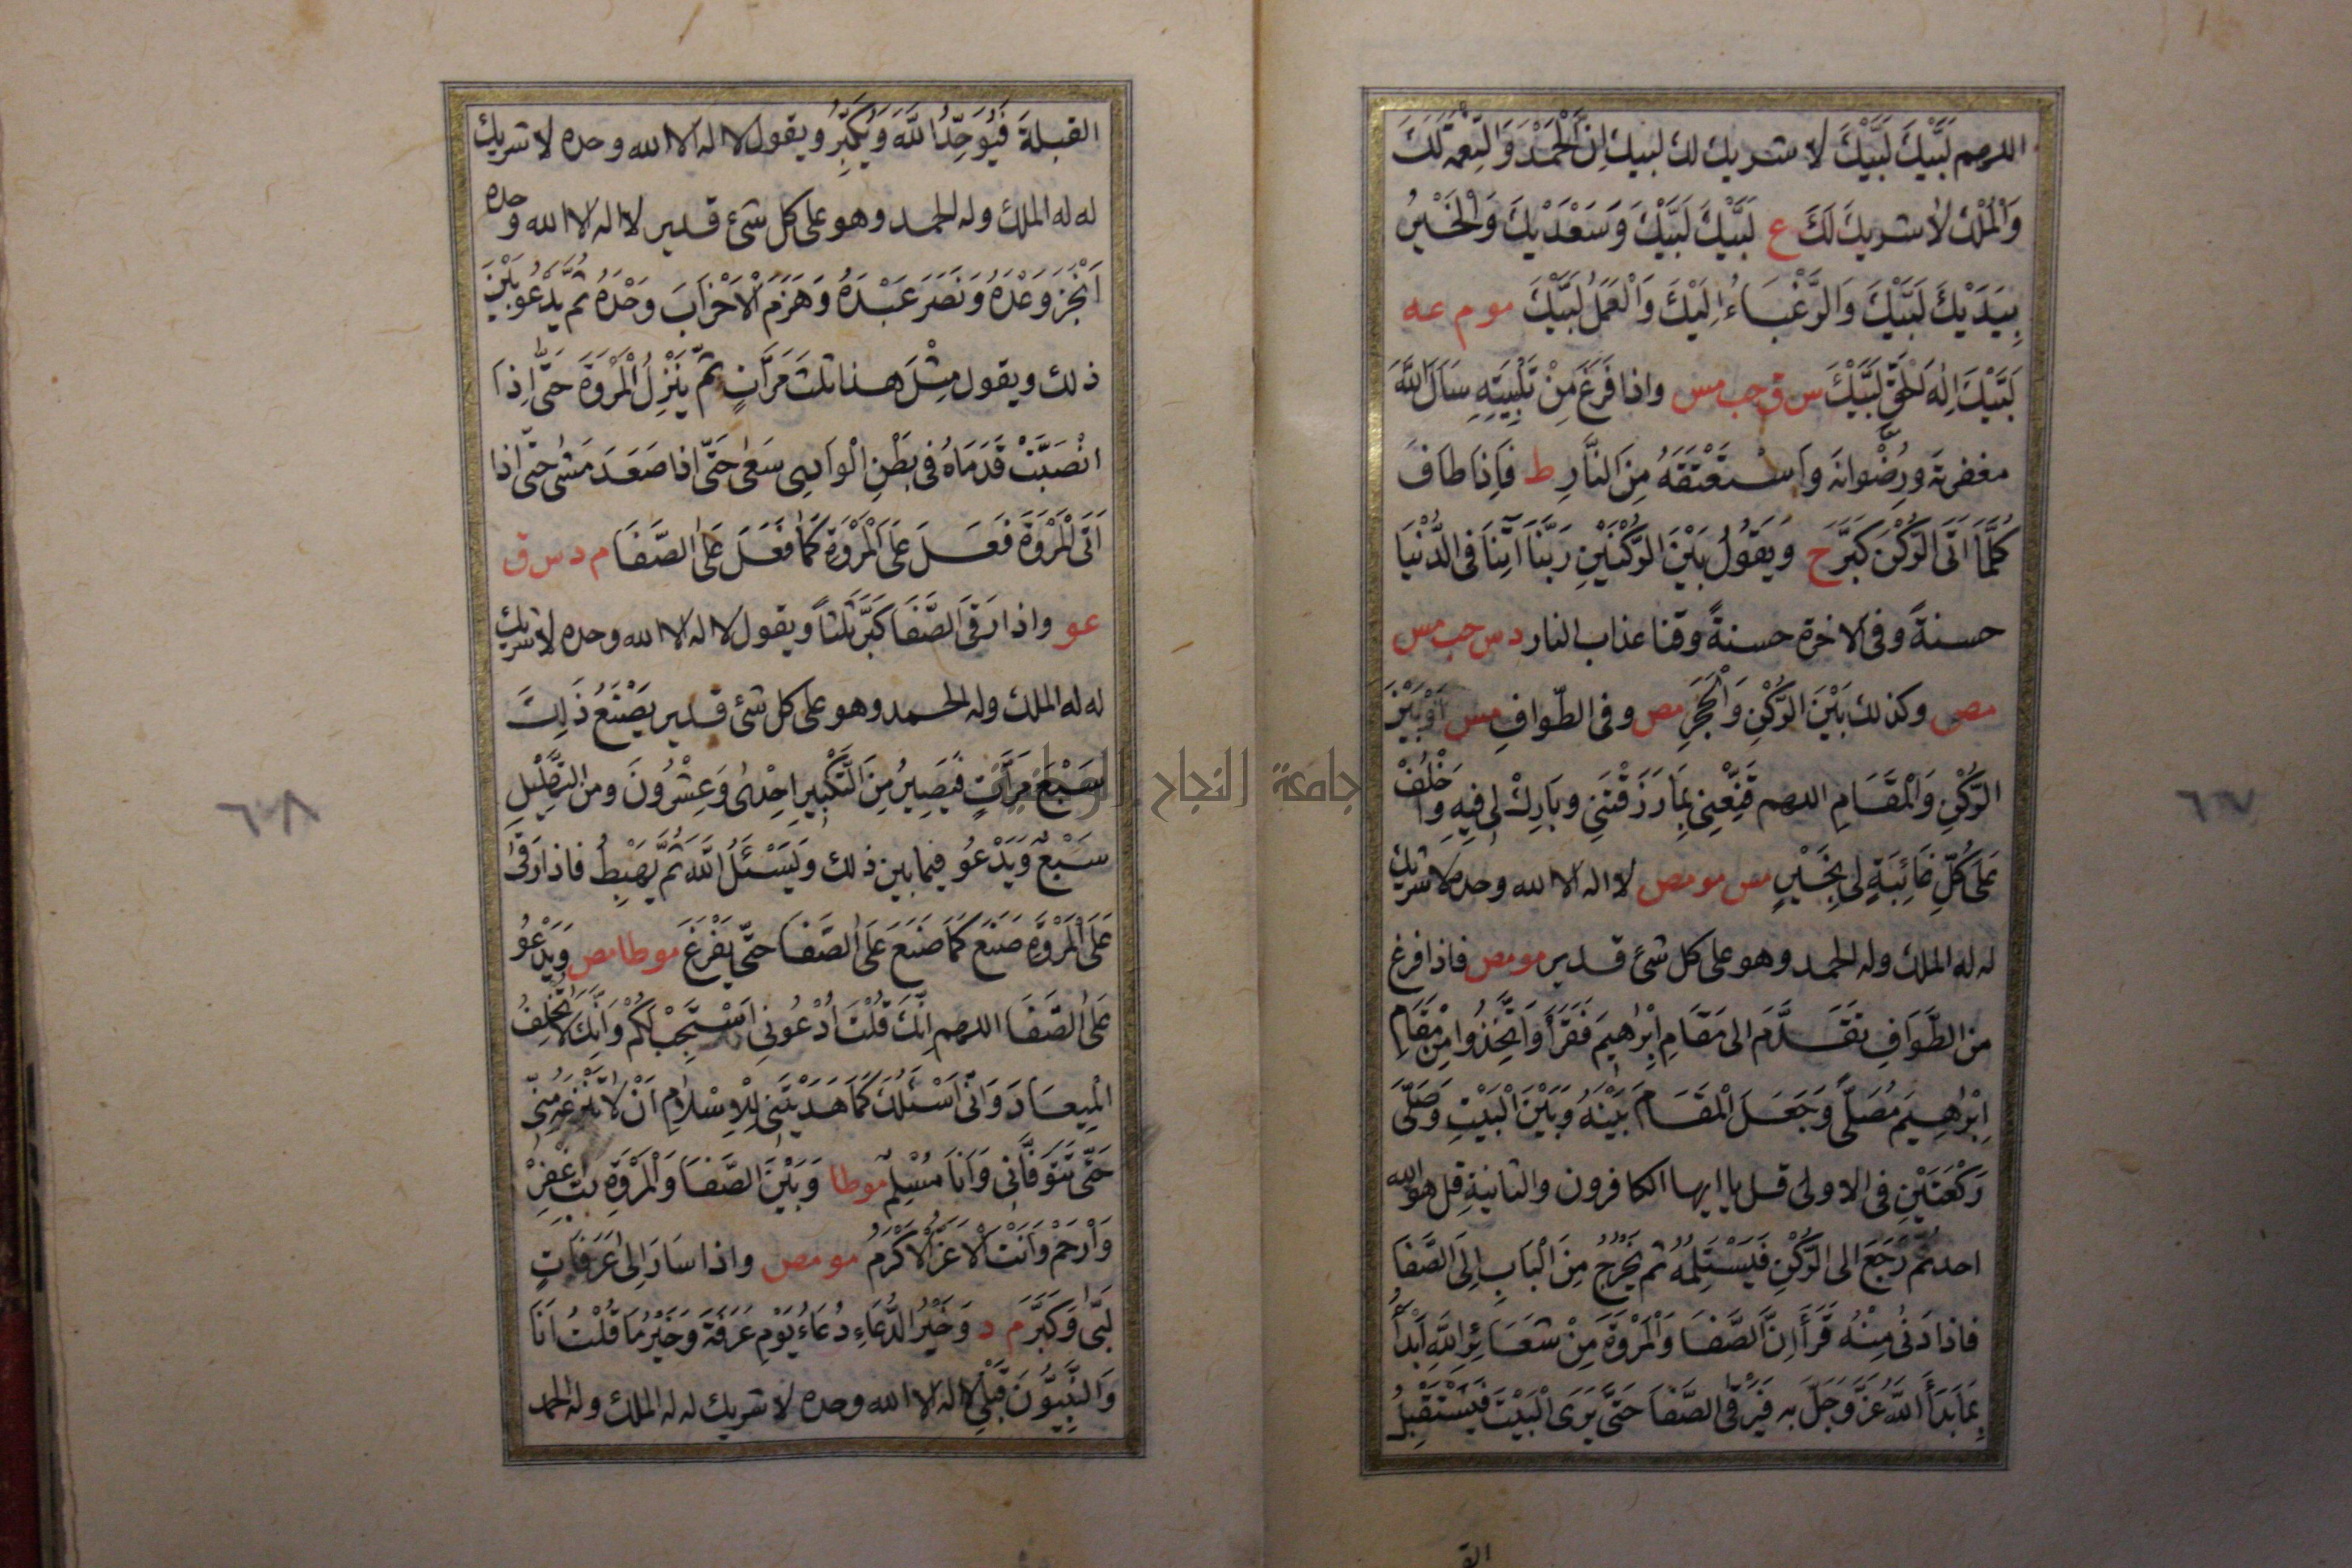 اللهم لَبَّيْكَ لَبَّيْكَ لا شريك لك لبيك اِنَّ الْحَمْدَ وَالنِّعْمَةَ لَكَ
وَالْمُلْكَ لَا شريكَ لَكَ ع لَبَّيْكَ لَبَّيْكَ وَسَعْدَيْكَ وَالْخَيْرُ
بِيَدَيْكَ لَبَّيْكَ وَالرَّغْبَاءُ اِلَيْكَ وَالْعَمَلُ لَبَّيْكَ مو م عه
لَبَّيْكَ اِلٰهَ الْحَقِّ لَبَّيْكَ س ق حب مس واذا فَرَغَ مِنْ تَلْبِيَتِهِ سَأَلَ اللّٰهَ
مغفرته ورِضْوانَه وَاسْتَعْتَقَهُ مِنَ النَّارِ ط فَاِذا طافَ
كُلَّمَا اَتَى الرُّكْنَ كَبَّرَ خ وَيَقُولُ بَيْنَ الرُّكْنَيْنِ رَبَّنَا آتِنَا فى الدُّنْيَا
حسنةً وفى الاخرة حسنةً وقنا عذاب النار د س حب مس
مص وكذلك بَيْنَ الرُّكْنِ وَالْحَجَرِ مص وفى الطّوافِ مس اَوْ بَيْنَ
الرُّكْنِ وَالْمَقَامِ اللهم قَنِّعْنِى بِمَا رَزَقْتَنِى وبَارِكْ لِى فِيهِ وَاخْلُفْ
عَلَى كُلِّ غَائِبَةٍ لِى بِخَيْرٍ مس مو مص لا اله الا الله وحده لا شريك
له له الملك وله الحمد وهو على كل شئ قدير مو مص فاذا فرغ
من الطَّوَافِ تقَدَّمَ الى مَقامِ اِبْرٰهِيمَ فَقَرَأَ وَاتَّخِذُوا مِنْ مَقَامِ
اِبْرٰهِيمَ مُصَلًّى وَجَعَلَ الْمَقَامَ بَيْنَهُ وَبَيْنَ الْبَيْتِ وَصَلَّى
رَكْعَتَيْنِ فى الاولى قل يا ايها الكافرون والثانية قل هو الله
احد ثُمَّ رَجَعَ الى الرُّكْنِ فَيَسْتَلِمُهُ ثم يَخْرُجُ مِنَ الْبَابِ اِلَى الصَّفَا
فاذا دَنٰى مِنْهُ قَرَأَ اِنَّ الصَّفَا وَالْمَرْوَةَ مِنْ شَعَائِرِ اللّٰهِ اَبْدَأُ
بِمَا بَدَأَ اللّٰهُ عَزَّ وَجَلَّ به فَيَرْقَى الصَّفَا حَتَّى يَرَى الْبَيْتَ فَيَسْتَقْبِلُ
القـ
القبلةَ فَيُوَحِّدُ اللّٰهَ وَيُكَبِّرُ ويقول لا اله الا الله وحده لا شريك
له له الملك وله الحمد وهو على كل شئ قدير لا اله الا الله وحده
اَنْجَزَ وَعْدَهُ وَنَصَرَ عَبْدَهُ وَهَزَمَ الْاَحْزَابَ وَحْدَهُ ثم يَدْعُو بَيْنَ
ذلك ويقول مِثْلَ هذا ثلٰثَ مَرَّاتٍ ثُمَّ يَنْزِلُ الْمَرْوَةَ حَتَّى اِذَا
انْصَبَّتْ قَدَمَاهُ فى بَطْنِ الْوادِى سَعٰى حَتّى اذا صَعَدَ مَشٰى حتّى اذا
اَتَى الْمَرْوَةَ فَعَلَ عَلَى الْمَرْوَةِ كَمَا فَعَلَ عَلَى الصَّفَا م د س ق
عو واذا رَقَى الصَّفَا كَبَّرَ ثَلٰثًا ويقول لا اله الا الله وحده لا شريك
له له الملك وله الحمد وهو على كل شئ قدير يَصْنَعُ ذٰلِكَ
سَبْعَ مَرَّاتٍ فَيَصِيرُ مِنَ التَّكْبِيرِ اِحْدٰى وَعِشْرُونَ ومن التَّهْلِيلِ
سَبْعٌ وَيَدْعُو فيما بين ذلك وَيَسْئَلُ اللّٰهَ ثُمَّ يَهْبِطُ فاذا رَقٰى
عَلَى الْمَرْوَةِ صَنَعَ كَمَا صَنَعَ عَلَى الصَّفَا حتّى يَفْرَغَ مو طا مص وَيَدْعُو
عَلَى الصَّفَا اللهم اِنَّكَ قُلْتَ اُدْعُونِى اَسْتَجِبْ لَكُمْ وَاِنَّكَ لَا تُخْلِفُ
الْمِيعَادَ وَاِنِّى اَسْئَلُكَ كَمَا هَدَيْتَنِى لِلْاِسْلَامِ اَنْ لَا تَنْزِعَهُ مِنِّى
حَتّٰى تَتَوَفَّانِى وَاَنَا مُسْلِمٌ مو طا وَبَيْنَ الصَّفَا وَالْمَرْوَةِ رب اغْفِرْ
وَارْحَمْ وَاَنْتَ الْاَعَزُّ الْاَكْرَمُ مو مص واذا سَارَ اِلٰى عَرَفَاتٍ
لَبّٰى وَكَبَّرَ م د وَخَيْرُ الدُّعَاءِ دُعَاءُ يَوْمِ عَرَفَةَ وَخَيْرُ مَا قُلْتُ اَنَا
وَالنَّبِيُّونَ قَبْلِى لا اله الا الله وحده لا شريك له له الملك وله الحمد
٦٠٨
جامعة النجاح الوطنية